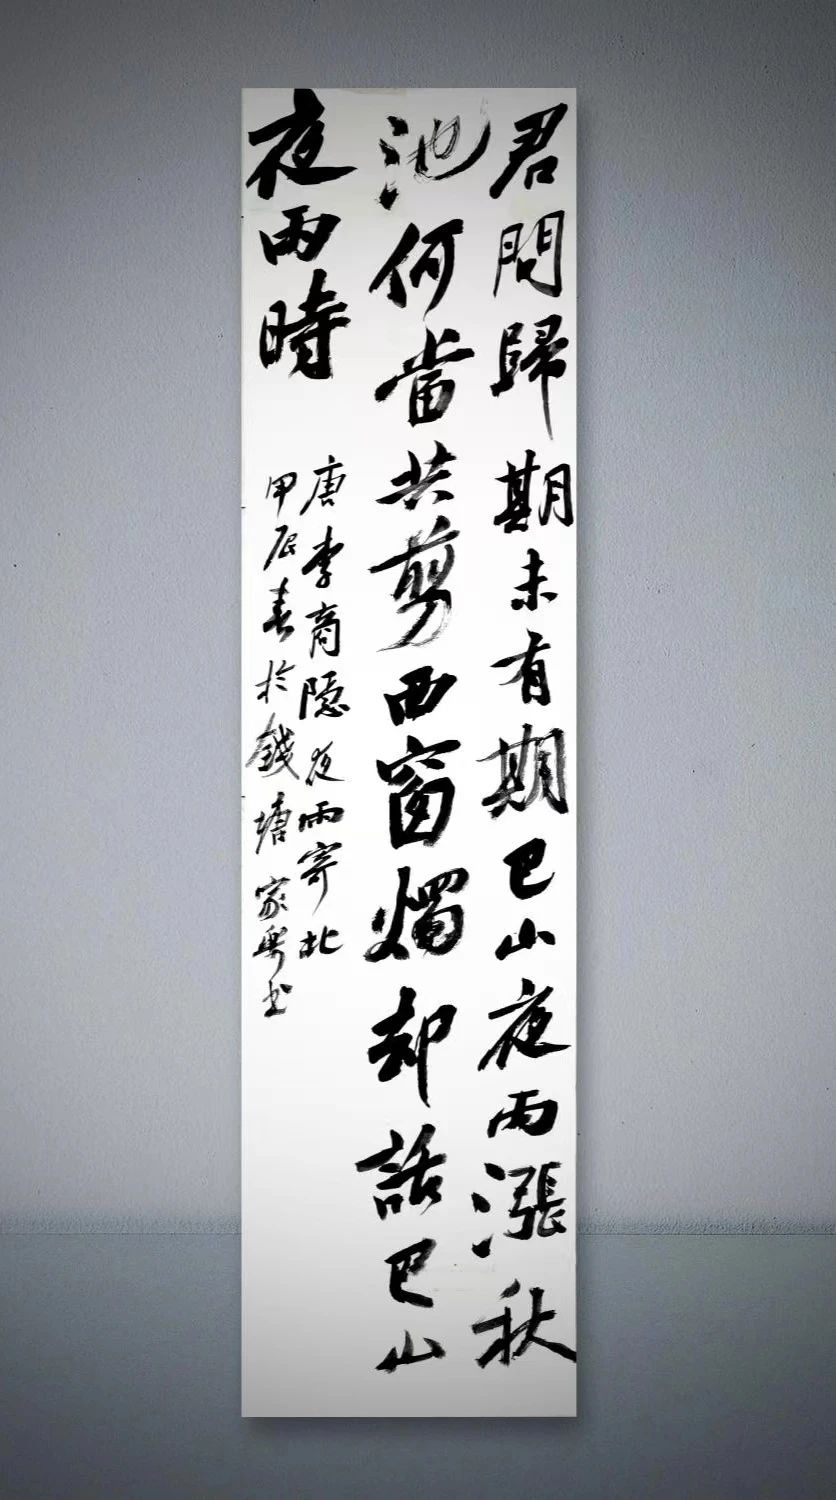 君問歸期未有期巴山夜雨漲秋
池何當共剪西窗燭却話巴山
夜雨時
唐李商隱夜雨寄北
甲辰春於錢塘家興書